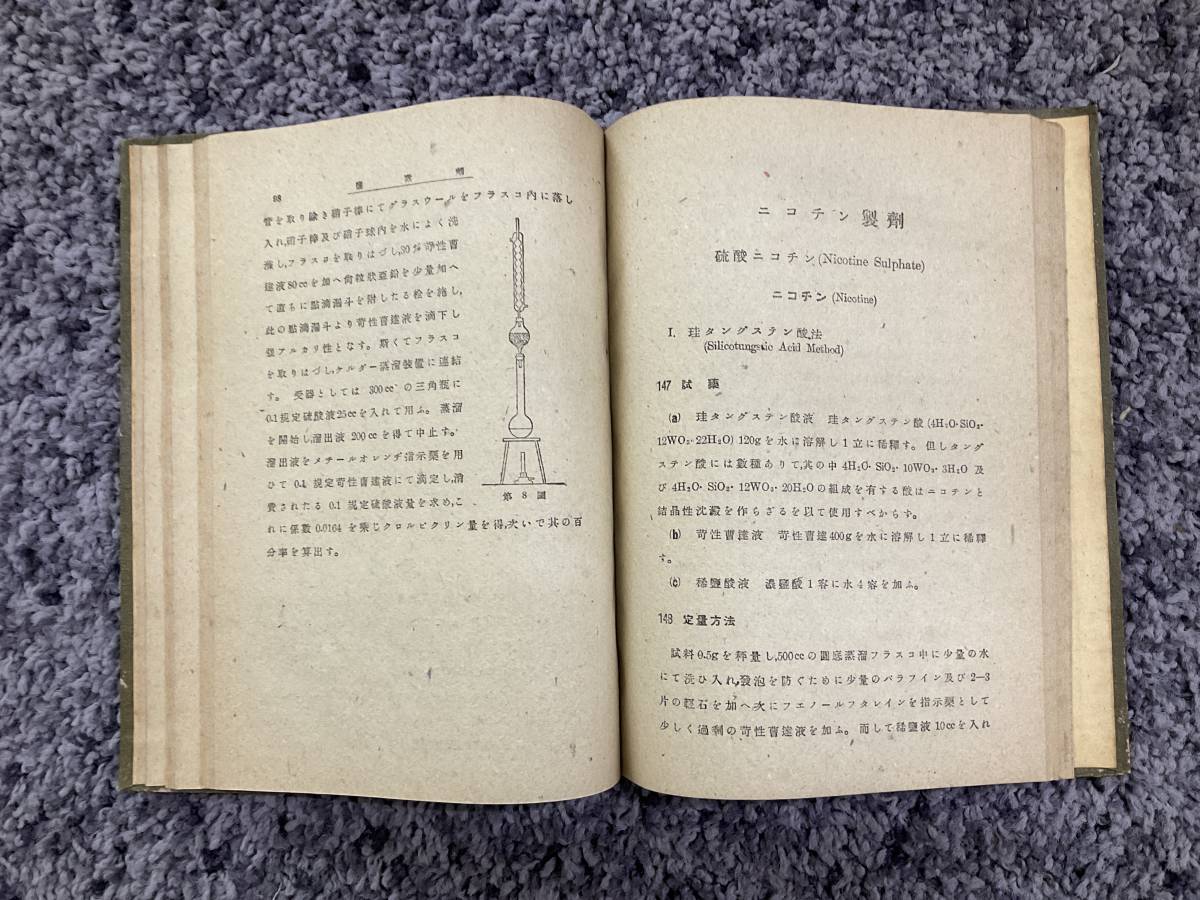 98
管を取り除き硝子棒にてグラスウールをフラスコ內に落し
入れ,硝子棒及び硝子球內を水によく洗
滌し,フラスコを取りはづし,30%苛性曹
達液80ccを加へ尙粒狀亜鉛を少量加へ
て直ちに點滴漏斗を附したる栓を施し,
此の點滴漏斗より苛性曹達液を滴下し
强アルカリ性となす。斯くてフラスコ
を取りはづし,ケルダー蒸溜裝置に連結
す。 受器としては 300cc の三角瓶に
0.1規定硫酸液25ccを入れて用ふ。蒸溜
を開始し,溜出液 200ccを得て中止す。
溜出液をメチールオレンヂ指示藥を用
ひて 0.1 規定苛性曹達液にて滴定し,消
費されたる 0.1 規定硫酸液量を求め,こ
れに係數 0.0164 を乘じクロルピクリン量を得,次いで其の百
分率を算出す。
第 8 圖
ニコチン製劑
硫酸ニコチン(Nicotine Sulphate)
ニコチン (Nicotine)
I. 珪タングステン酸法
(Silicotungstic Acid Method)
147 試 藥
(a) 珪タングステン酸液 珪タングステン酸 (4H₂O·SiO₂·
12WO₃·22H₂O) 120gを水に溶解し1立に稀釋す。但しタング
ステン酸には數種ありて,其の中 4H₂O· SiO₂· 10WO₃· 3H₂O 及
び 4H₂O· SiO₂· 12WO₃· 20H₂Oの組成を有する酸はニコチンと
結晶性沈澱を作らざるを以て使用すべからず。
(b) 苛性曹達液 苛性曹達400gを水に溶解し1立に稀釋
す。
(c) 稀鹽酸液 濃鹽酸1容に水4容を加ふ。
148 定量方法
試料0.5gを秤量し,500ccの圓底蒸溜フラスコ中に少量の水
にて洗ひ入れ,發泡を防ぐために少量のパラフイン及び2—3
片の輕石を加へ次にフエノールフタレインを指示藥として
少しく過剩の苛性曹達液を加ふ。而して稀鹽液10ccを入れ